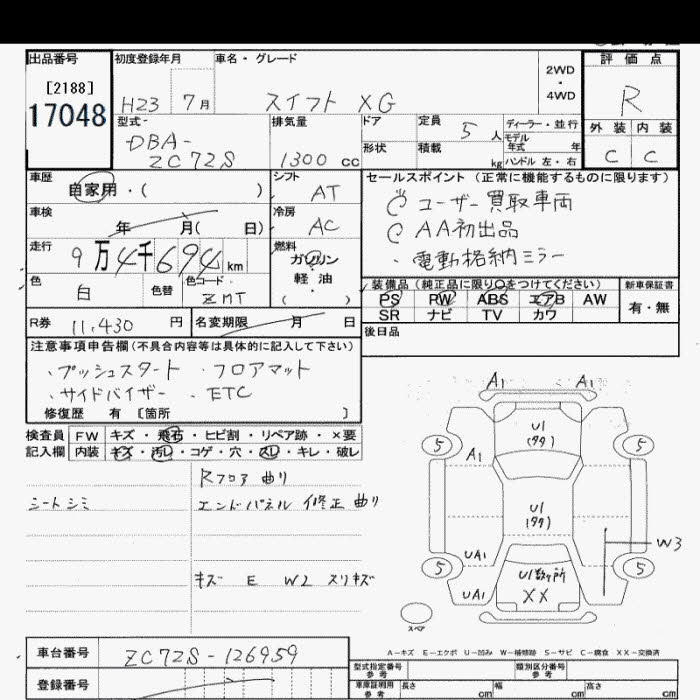 出品番号 初度登録年月 車名・グレード 評価点
[2188]
17048
H23 7月 スイフト XG 2WD・4WD R
型式 排気量 ドア 定員 5人 ディーラー・並行 外装 内装
モデル年式 年
DBA-
ZC72S 1300cc 形状 積載 kg ハンドル 左・右 C C
車歴 シフト セールスポイント (正常に機能するものに限ります)
自家用・( ) AT ユーザー買取車両
車検 冷房 AA初出品
年 月( 日) AC ・電動格納ミラー
走行 燃料
9万4千694km ガソリン・軽油
( )
色 色替 色コード 装備品(純正品に限り○をつけてください) 新車保証書
白 ZMT PS PW ABS エアB AW 有・無
SR ナビ TV カワ
R券 11,430円 名変期限 月 日 後日品
注意事項申告欄(不具合内容等は具体的に記入して下さい)
・プッシュスタート ・フロアマット
・サイドバイザー ・ETC
修復歴 有 [箇所 ]
検査員 FW キズ・飛石・ヒビ割・リペア跡・×要
記入欄 内装 キズ・汚レ・コゲ・穴・スレ・キレ・破レ
Rフロア 曲り
シートシミ エンドパネル 修正 曲り
キズ E W2 スリキズ
A1 A1
U1
5 5
A1
U1
W3
UA1
5 5
UA1 U1数ヶ所
XX
スペア
A-キズ E-エクボ U-凹み W-補修跡 S-サビ C-腐食 XX-交換済
車台番号 ZC72S-126959 型式指定番号 参考 類別区分番号 参考
登録番号 車庫証明用 参考 長さ cm 幅 cm 高さ cm